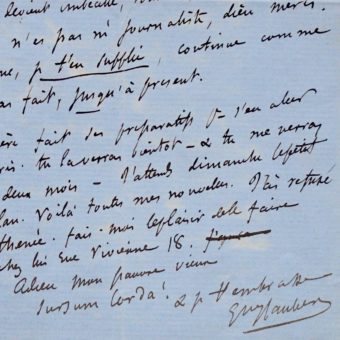 devient imbécille, 
n'es pas né journaliste, dieu merci.
je t'en supplie, continue comme
as fait, jusqu'à présent.
fait des préparatifs p s'en aller
tu la verras bientôt – & tu me verras
deux mois – J'attends dimanche le petit
Voilà toutes mes nouvelles. J'ai refusé
fais-moi le plaisir de le faire
chez lui rue Vivienne 18.
Adieu mon pauvre vieux
Sursum Corda! & je t'embrasse
Gve Flaubert